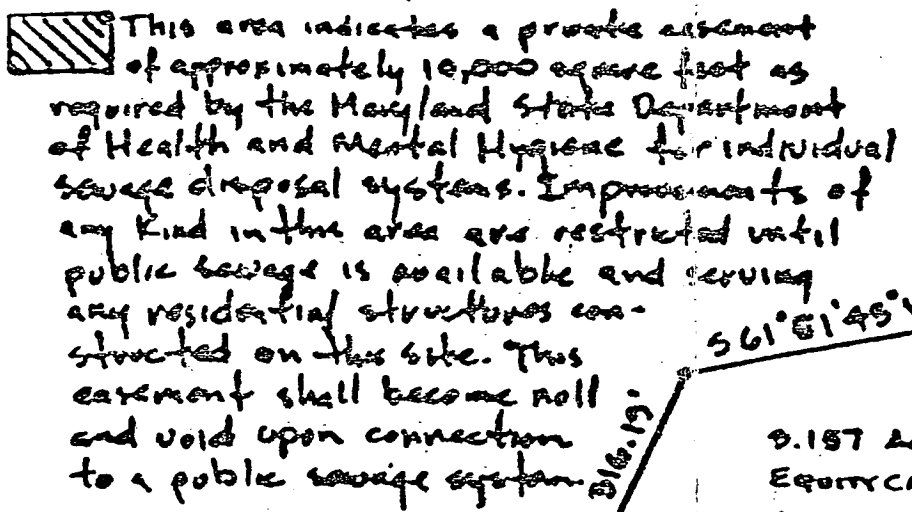 This area indicates a private easement
of approximately 10,000 square feet as
required by the Maryland State Department
of Health and Mental Hygiene for individual
sewage disposal systems. Improvements of
any kind in this area are restricted until
public sewage is available and serving
any residential structures con-
structed on this site. This
easement shall become null
and void upon connection
to a public sewage system.
S61°51'45"
316.19'